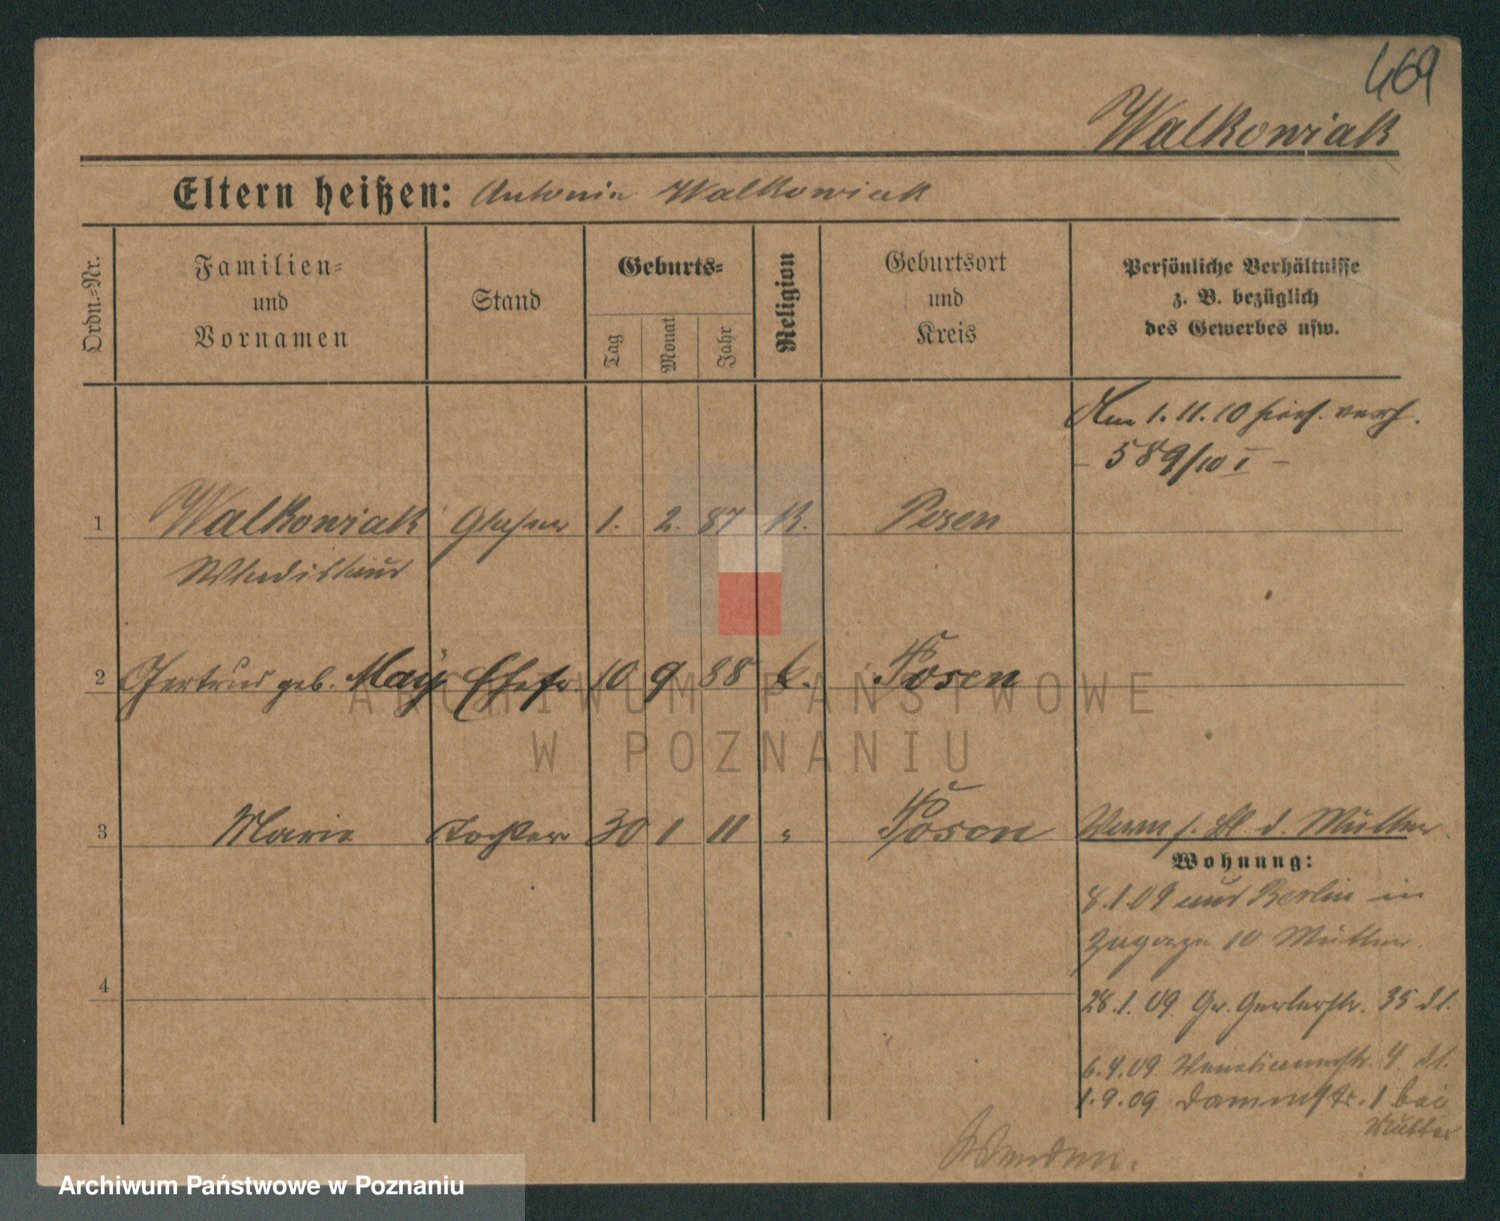 469
Walkowiak
Eltern heißen: Antonie Walkowiak
Ordn.=Nr.
Familien=
und
Vornamen
Stand
Geburts=
Tag
Monat
Jahr
Religion
Geburtsort
und
Kreis
Persönliche Verhältnisse
z. B. bezüglich
des Gewerbes usw.
Am 1.11.10 hier verh.
- 589/10 I -
1 Walkowiak Glaser 1. 2. 87 K. Posen
Wladislaus
2 Gertrud geb. May Ehefr. 10 9 88 k. Posen
3 Marie Tochter 30 1 11 " Posen
d. Mutter
Wohnung:
8.1.09 aus Berlin in
10 Mutter
28.1.09 Gr. Gerberstr. 35
4
6.4.09 Venetianerstr. 4
1.9.09 Dammstr. 1 bei
Mutter
Wenden.
ARCHIWUM PAŃSTWOWE
W POZNANIU
Archiwum Państwowe w Poznaniu